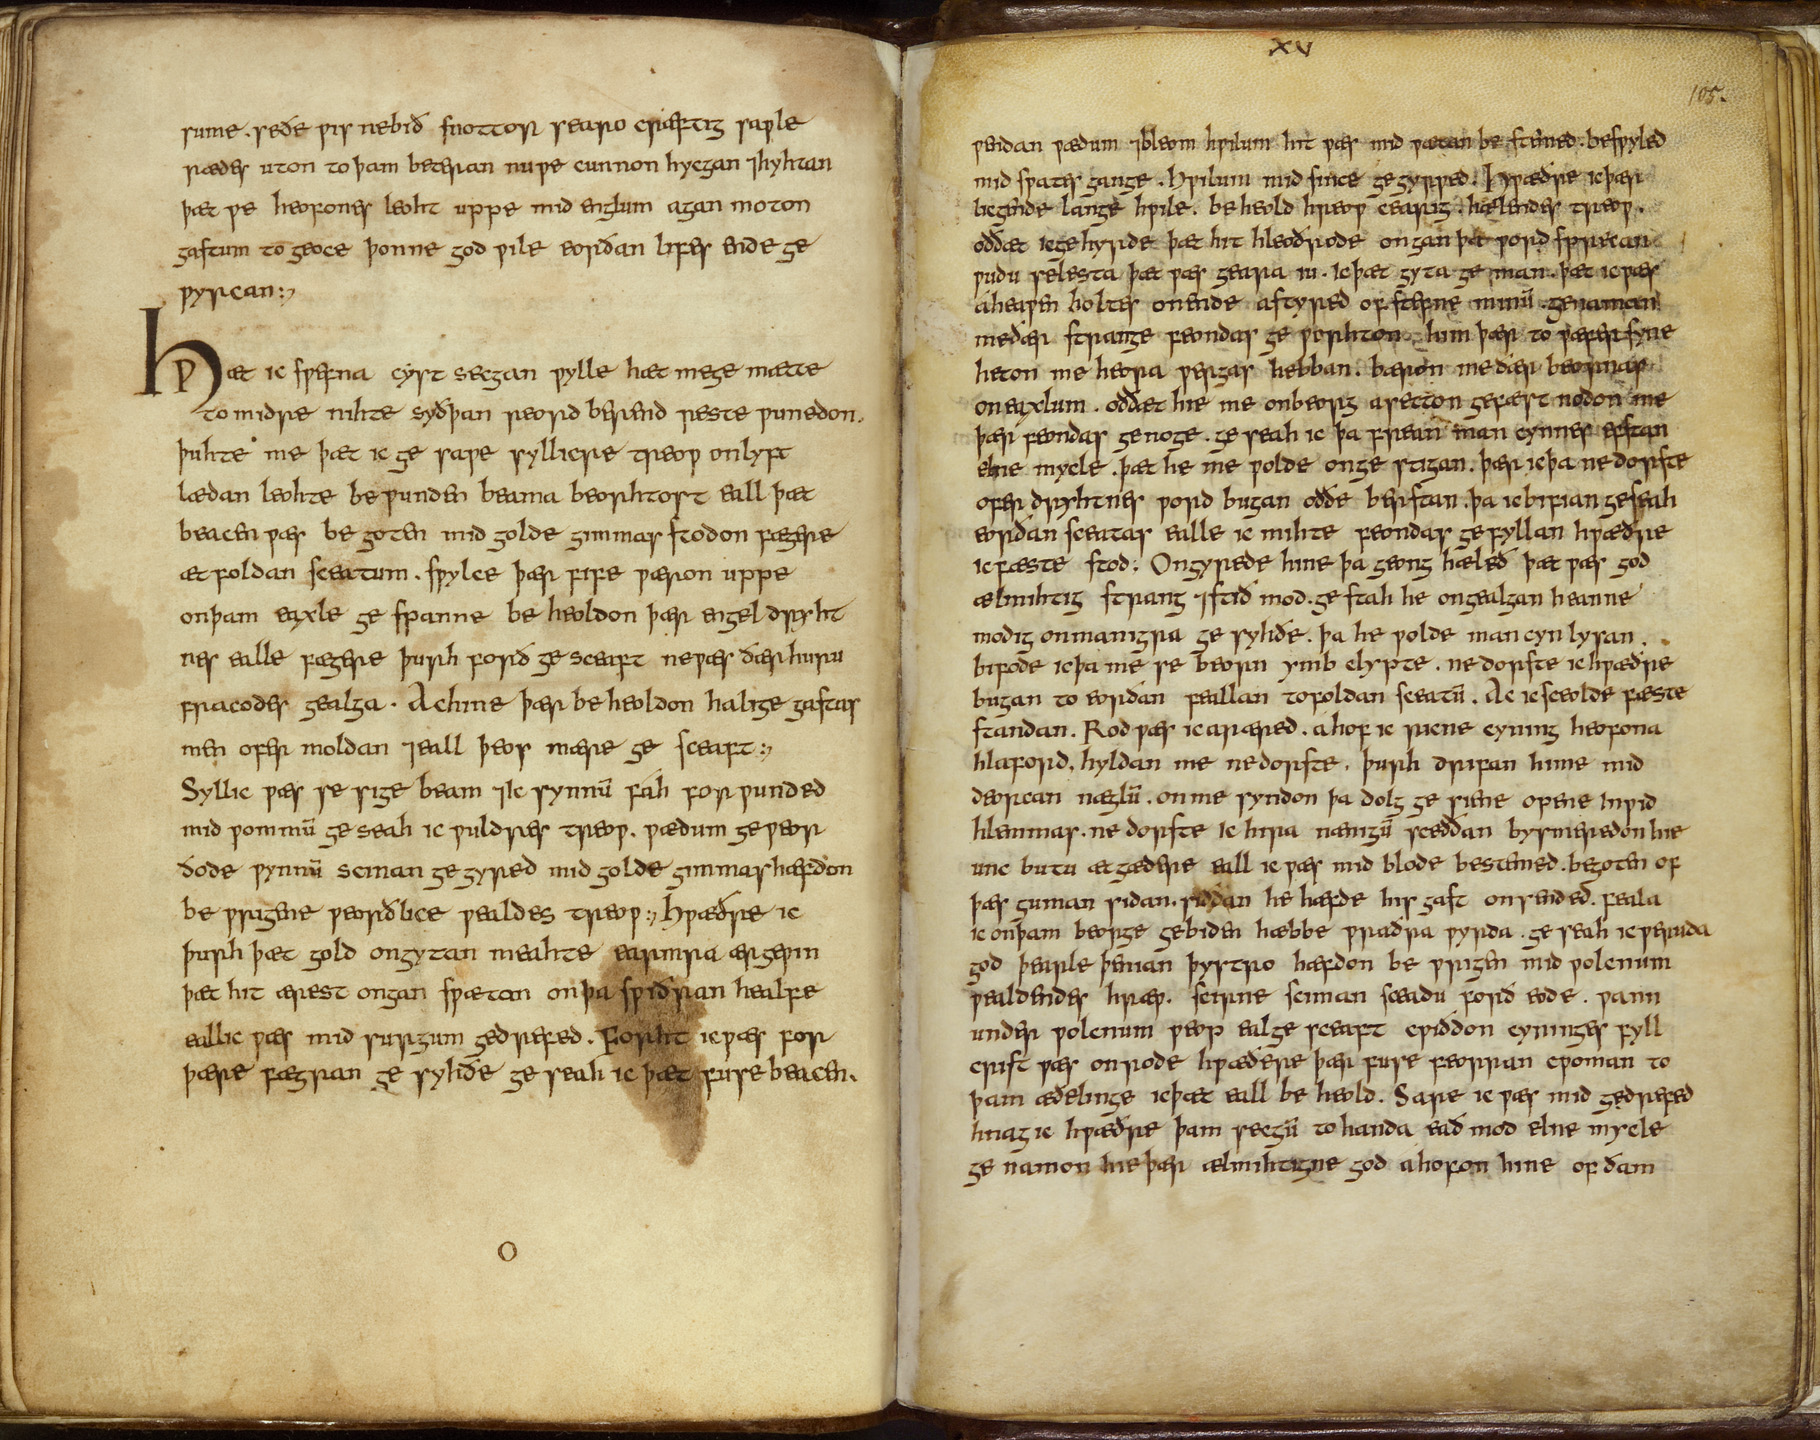 sume . seðe þis ne bið snottor searo cræftig saƿle
rædes uton to þam beteran nu ƿe cunnon hycgan ⁊ hyhtan
þæt ƿe heofones leoht uppe mid englum agan moton
gastum to geoce þonne god ƿile eorðan lifes ende ge
ƿyrcan:,
Hƿæt ic sƿefna cyst secgan ƿylle hæt me ge mætte
to midre nihte syðþan reord berend reste ƿunedon.
þuhte me þæt ic ge saƿe syllicre treoƿ on lyft
lædan leohte be ƿunden beama beorhtost eall þæt
beacen ƿæs be goten mid golde gimmas stodon fægere
æt foldan sceatum . sƿylce þær fife ƿæron uppe
on þam eaxle ge spanne be heoldon þær engel dryht
nes ealle fægere þurh forð ge sceaft ne ƿæs ðær huru
fracodes gealga . Ac hine þær be heoldon halige gastas
men ofer moldan ⁊ eall þeos mære ge sceaft:,
Syllic ƿæs se sige beam ⁊ ic synnū fáh for ƿunded
mid ƿommū ge seah ic ƿuldres treoƿ . ƿædum ge ƿeor
ðode ƿynnū scinan ge gyred mid golde gimmas hæfdon
be ƿrigene ƿeorðlice ƿealdes treoƿ:, Hƿæðre ic
þurh þæt gold ongytan meahte earmra ærgeƿin
þæt hit ærest ongan sƿætan on þa sƿiðran healfe
eall ic ƿæs mid surgum gedrefed . Forht ic ƿæs for
þære fægran ge syhðe ge seah ic þæt fuse beacen .
O
XV
105.
ƿendan ƿædum ⁊ bleom hƿilum hit ƿæs mid ƿætan be stemed . be sƿyled
mid sƿates gange . Hƿilum mid since gegyrƿed . Hƿæðre ic þær
licgende lange hƿile . be heold hreoƿ cearig . hælendes treoƿ .
oððæt ic ge hyrde þæt hit hleoðrode ongan þa ƿord sprecan
ƿudu selesta þæt ƿæs geara iu . ic þæt gyta ge man . þæt ic ƿæs
aheaƿen holtes on ende astyred of stefne minū . genaman
me ðær strange feondas ge ƿorhton him þær to ƿæfersyne
heton me heora ƿergas hebban . bæron me ðær beornas
on eaxlum . oððæt hie me on beorg asetton gefæst nodon me
þær feondas genoge . ge seah ic þa frean man cynnes efstan
elne mycle . þæt he me ƿolde on ge stigan . þær ic þa ne dorste
ofer dryhtnes ƿord bugan oððe berstan . þa ic bifian geseah
eorðan sceatas ealle ic mihte feondas gefyllan hƿæðre
ic fæste stod: Ongyrede hine þa geong hæleð þæt ƿæs god
ælmihtig strang ⁊ stið mod . ge stah he on gealgan heanne
modig on manigra ge syhðe . þa he ƿolde man cyn lysan .
bifode ic þa me se beorn ymb clypte . ne dorste ic hƿæðre
bugan to eorðan feallan to foldan sceatū . Ac ic sceolde fæste
standan . Rod ƿæs ic aræred . ahof ic ricne cyning heofona
hlaford . hyldan me ne dorste . þurh drifan hi me mid
deorcan næglū . on me syndon þa dolg ge siene opene inƿid
hlemmas . ne dorste ic hira nænigū sceððan bysmeredon hie
unc butu ætgædere eall ic ƿæs mid blode bestemed . begoten of
þæs guman sidan . siððan he hæfde his gast on sended . Feala
ic on þam beorge gebiden hæbbe ƿraðra ƿyrda . ge seah ic ƿeruda
god þearle þenian þystro hæfdon be ƿrigen mid ƿolcnum
ƿealdendes hræƿ . scirne sciman sceadu forð eode . ƿann
under ƿolcnum ƿeop ealge sceaft cƿiðdon cyninges fyll
crist ƿæs on rode hƿæðere þær fuse feorran cƿoman to
þam æðelinge ic þæt eall be heold . Sare ic ƿæs mid gedrefed
hnag ic hƿæðre þam secgū to handa eað mod elne mycle
ge namon hie þær ælmihtigne god ahofon hine of ðam